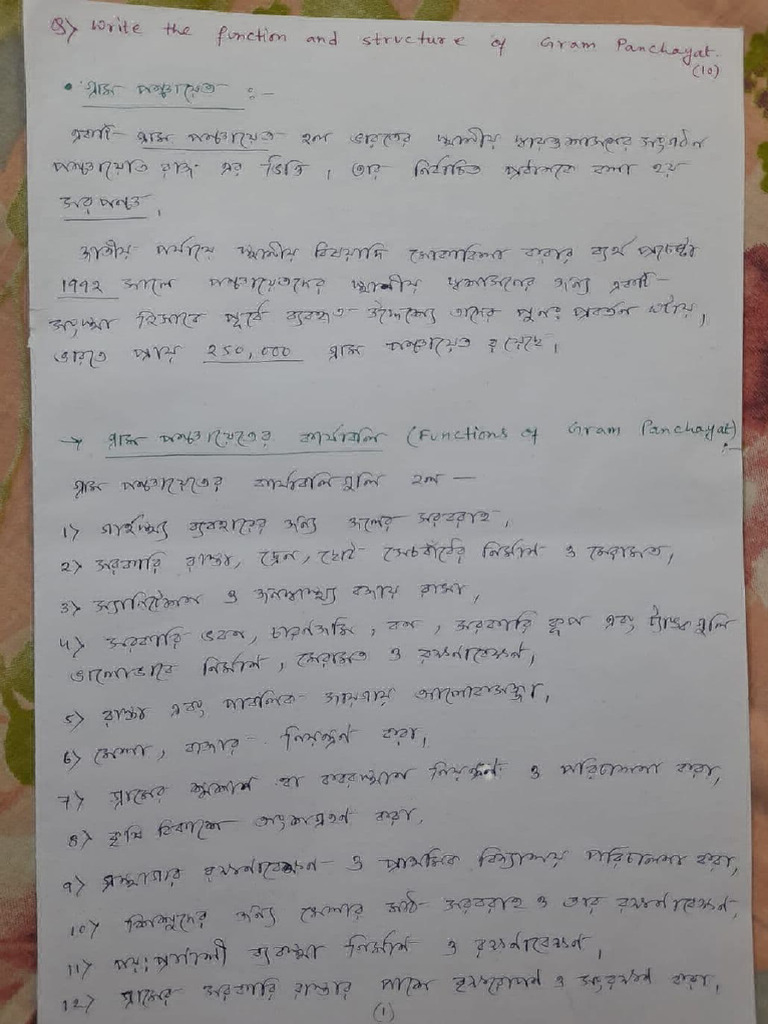 Q> Write the function and structure of Gram Panchayat.
(10)
• গ্রাম পঞ্চায়েত :-
একটি গ্রাম পঞ্চায়েত হল ভারতের স্থানীয় স্বায়ত্তশাসনের সংগঠন
পঞ্চায়েতি রাজ এর ভিত্তি, তার নির্বাচিত প্রধানকে বলা হয়
সরপঞ্চ,
জাতীয় পর্যায়ে স্থানীয় বিষয়াদি মোকাবিলা করার ব্যর্থ প্রচেষ্টা
1992 সালে পঞ্চায়েতদের স্থানীয় স্বশাসনের জন্য একটি
সংস্থা হিসাবে পূর্বে ব্যবহৃত উদ্দেশ্যে তাদের পুনর প্রবর্তন ঘটায়,
ভারতে প্রায় ২50,000 গ্রাম পঞ্চায়েত রয়েছে,
→ গ্রাম পঞ্চায়েতের কার্যাবলি (Functions of Gram Panchayat) :-
গ্রাম পঞ্চায়েতের কার্যাবলি গুলি হল —
1> গার্হস্থ্য ব্যবহারের জন্য জলের সরবরাহ,
2> সরকারি রাস্তা, ড্রেন, ছোট সেচকার্যের নির্মাণ ও মেরামত,
3> স্যানিটেশন ও জনস্বাস্থ্য বজায় রাখা,
4> সরকারি ভবন, চারণজমি, বন, সরকারি কূপ এবং ট্যাঙ্ক গুলি
ভালোভাবে নির্মাণ, মেরামত ও রক্ষণাবেক্ষণ,
5> রাস্তা এবং পাবলিক জায়গায় আলোবাসস্থা,
6> মেলা, বাজার নিয়ন্ত্রণ করা,
7> গ্রামের শ্মশান বা কবরস্থান নিয়ন্ত্রণ ও পরিচালনা করা,
8> কৃষি বিকাশে অংশগ্রহণ করা,
9> গ্রন্থাগার রক্ষণাবেক্ষণ ও প্রাথমিক বিদ্যালয় পরিচালনা করা,
10> শিশুদের জন্য খেলার মাঠ সরবরাহ ও তার রক্ষণাবেক্ষণ,
11> পয়ঃপ্রণালী ব্যবস্থা নির্মাণ ও রক্ষণাবেক্ষণ,
12> গ্রামের সরকারি রাস্তার পাশে বৃক্ষরোপণ ও সংরক্ষণ করা,
(1)